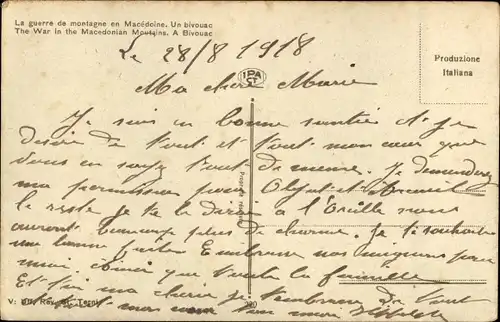 La guerre de montagne en Macédoine. Un bivouac
The War in the Macedonian Moutains. A Bivouac
Le 28/8 1918
Produzione
Italiana
Ma chère Marie
Je suis en bonne santée et je
désire de tout et tout mon cœur que
vous en soyez tout de meme. Je demanderez
ma permission pour
le reste je te le dirai a l'Oreille nous
auront beaucoup plus de charme. Je te souhaite
une bonne Embrasse nos mignons pour
moi ainsi que toute la famille
Et toi ma cherie je t'embrasse de tout
mon
220